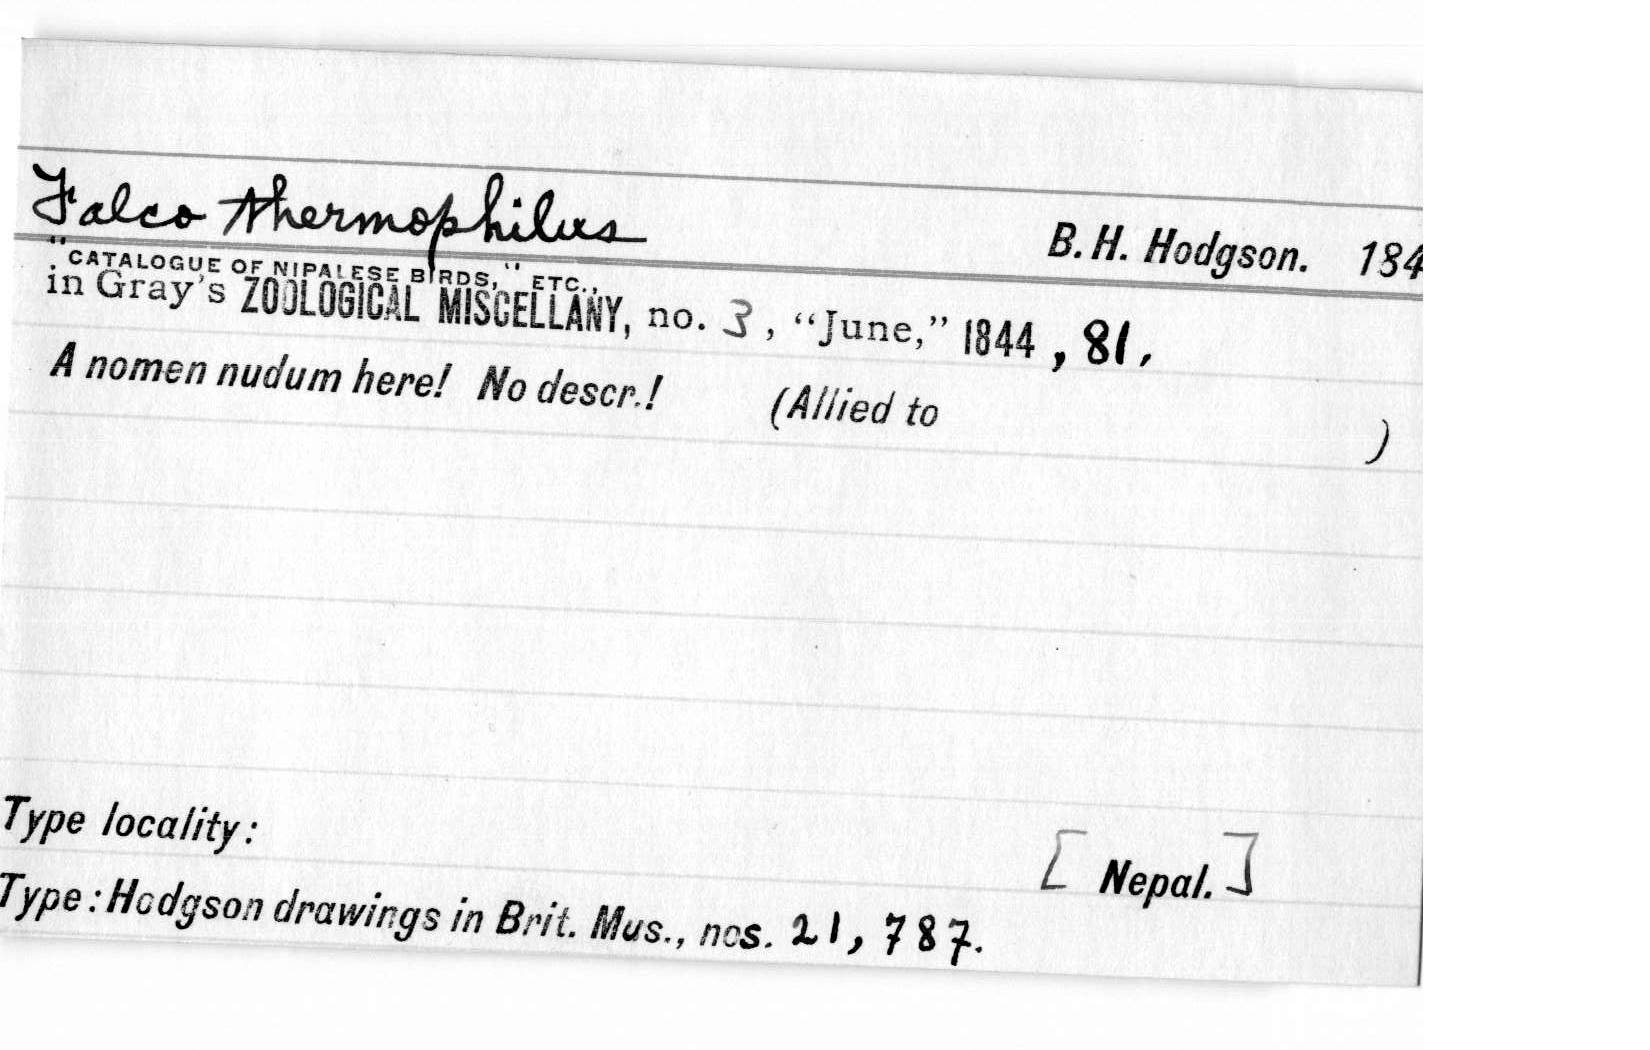 Falco thermophilus
B. H. Hodgson. 184
"CATALOGUE OF NIPALESE BIRDS," ETC.,
in Gray's ZOOLOGICAL MISCELLANY, no. 3, "June," 1844, 81.
A nomen nudum here! No descr.! (Allied to )
Type locality: [Nepal.]
Type: Hodgson drawings in Brit. Mus., nos. 21, 787.